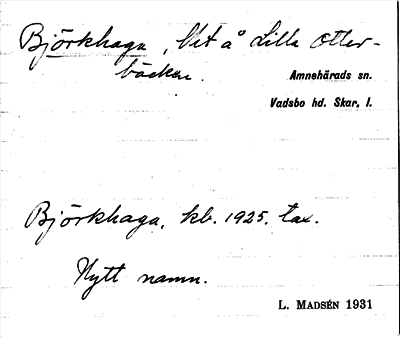 Björkhaga, lht å Lilla Otter-
bäcken.
Amnehärads sn.
Vadsbo hd. Skar. l.
Björkhaga, kb. 1925. tax.
Nytt namn.
L. MADSÉN 1931